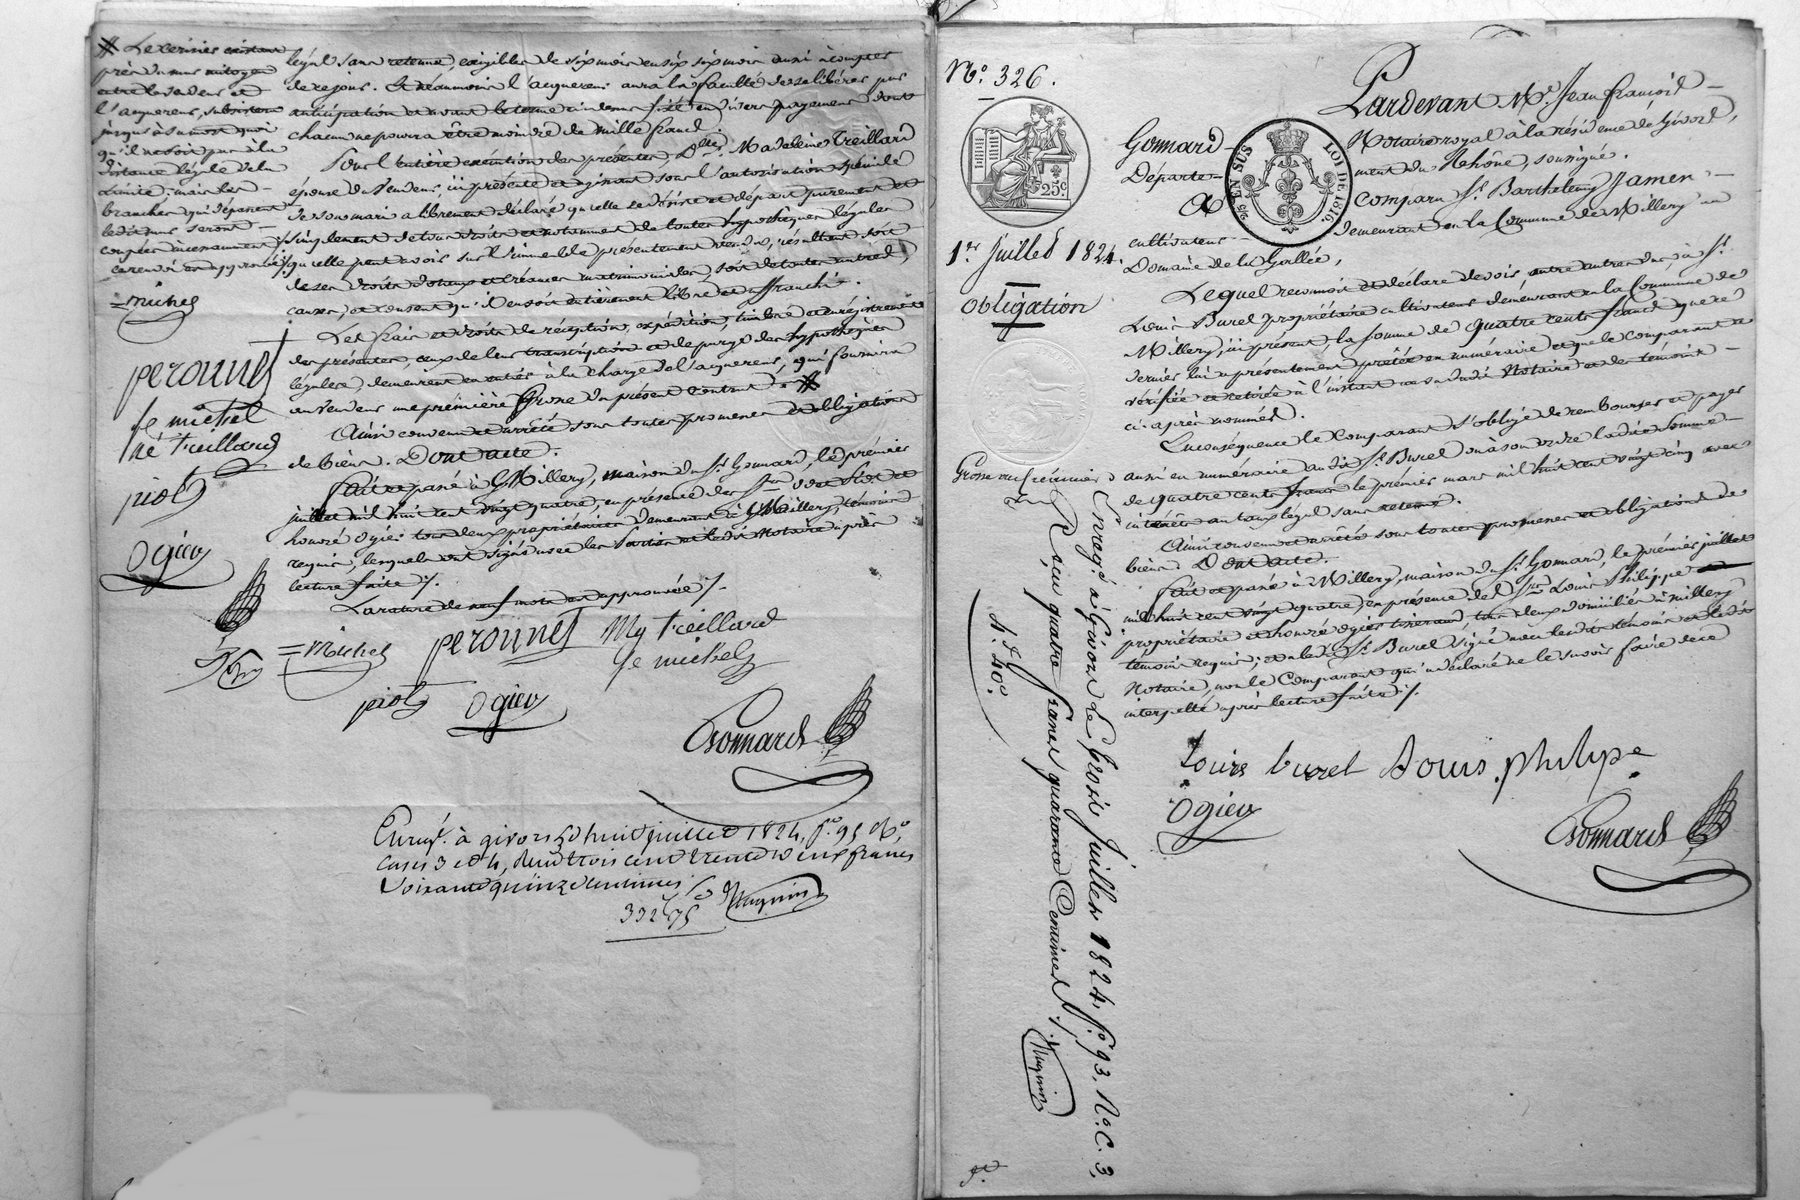 Le cerisier existant
près du mur mitoyen
entre le vendeur et
l'acquereur, subsistera
jusques à sa mort quoi
qu'il ne soit pas à la
distance légale de la
limite; mais les
branches qui dépassent
ledit mur seront
coupées incessamment
ce renvoi est approuvé
=Michel
perounet
fe michel
né treillard
piot
Ogier
légal sans retenue, exigibles de six mois en six six mois aussi à compter
de ce jour. Et néanmoins l'acquereur aura la faculté de se libérer par
anticipation et avant le terme ci dessus fixé en divers payemens dont
chacun ne pourra être moindre de mille francs.
Pour l'entière exécution des présentes, D.lle Madeleine Treillard
épouse du Vendeur, ici présente et agissant sous l'autorisation spéciale
de son mari a librement déclaré qu'elle se désiste et départ purement et
simplement de tous droits et notamment de toutes hypothèques légales
qu'elle peut avoir sur l'immeuble présentement vendu, résultant soit
de ses droits dotaux et créances matrimoniales, soit de toutes autres
causes, et consent qu'il en soit entièrement libre et affranchi.
Les frais et droits de réception, expédition, timbre et enrégistrement
des présentes, ceux de leur transcription et de purge des hypothèques
légales, demeurent en entier à la charge de l'acquereur, qui fournira
au Vendeur une première Grosse du présent contrat
Ainsi convenu et arrêté sous toutes promesses et obligations
de biens. Dont acte.
Fait et passé à Millery, maison du S.r Gonnard, le prémier
juillet mil huit cent vingt quatre, en présence des S.rs Piot et
honoré Ogier tous deux propriétaires demeurant à Millery, témoins
requis, lesquels ont signé avec les parties et ledit Notaire après
lecture faite ./.
La rature de neuf mots est approuvée ./.
=Michel perounet My treillard
fe michel
piot Ogier
Gonnard
Enreg. à givors le huit juillet 1824, f.o 95 R.o
cases 3 et 4, reçu trois cent trente deux francs
soixante quinze centimes
332 f 75 c
N.o 326.
1.er Juillet 1824.
Obligation
25 c
25 EN SUS
LOI DE 1816.
Pardevant M.e Jean françois
Gonnard Notaire royal à la résidence de Givors,
Département du Rhône, soussigné.
A comparu S.r Barthelemy Jamen
cultivateur demeurant en la Commune de Millery au
Domaine de la Gallée,
Lequel reconnoit et déclare devoir entre autres dus, à S.r
Louis Burel propriétaire cultivateur demeurant en la Commune de
Millery, ici présent, la somme de quatre cents francs que ce
dernier lui a présentement pretée en numéraire et que le comparant a
vérifiée et retirée à l'instant au vu dudit Notaire et des témoins
ci-après nommés.
En conséquence le Comparant s'oblige de rembourser et payer
aussi en numéraire audit S.r Burel ou à son ordre ladite somme
de quatre cents francs le prémier mars mil huit cent vingt cinq avec
intérêts au taux légal sans retenue.
Ainsi convenu et arrêté sous toutes promesses et obligations de
biens. Dont acte.
Fait et passé à Millery, maison du S.r Gonnard, le prémier juillet
mil huit cent vingt quatre, en présence des S.rs Louis Philippe
propriétaire et honoré Ogier tisserand, tous deux domiciliés à Millery
témoins requis; et a ledit S.r Burel signé avec lesdits témoins et ledit
Notaire, non le Comparant qui a déclaré ne le savoir faire de ce
interpellé après lecture faite ./.
Louis burel Louis philipe
Ogier
Gonnard
Grosse au créancier
Enreg.é à Givors le trois Juillet 1824, f.o 93. R.o C. 3,
Reçu quatre francs quarante Centimes ./.
4.f 40.c